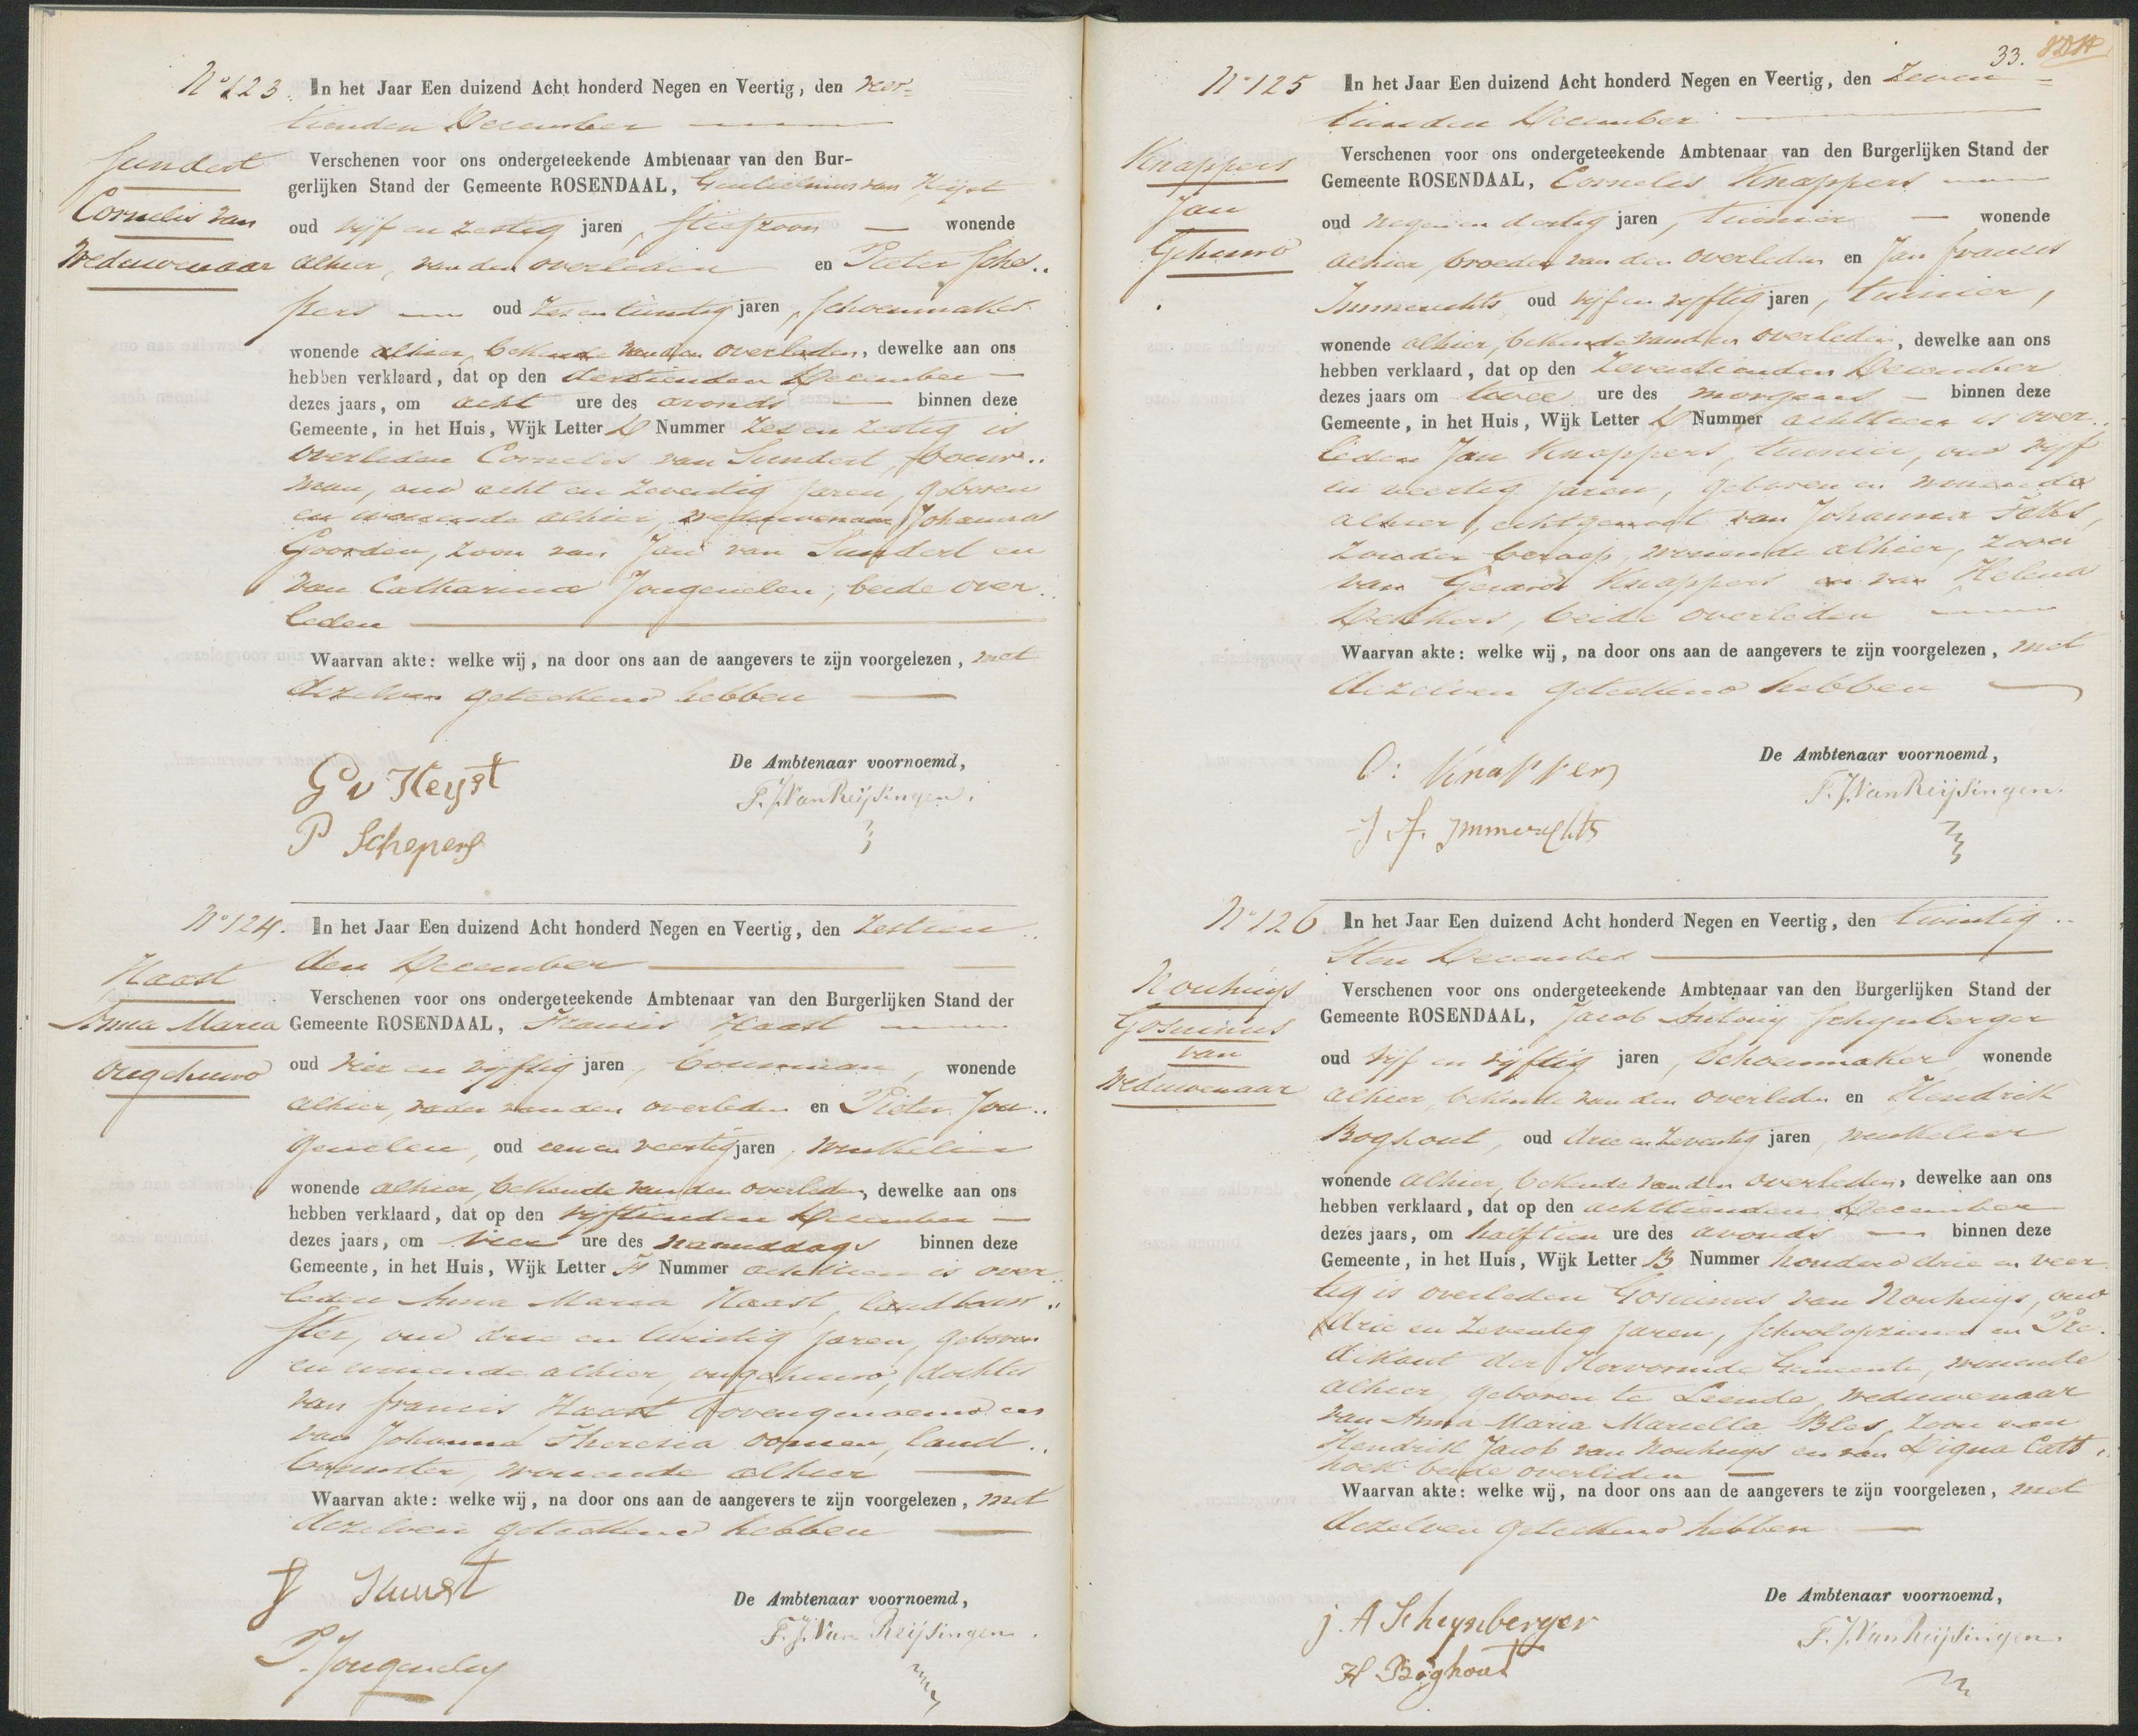 N° 123. In het Jaar Een duizend Acht honderd Negen en Veertig, den veer-
tienden December
Sundert
Cornelis van
Weduwenaar
Verschenen voor ons ondergeteekende Ambtenaar van den Bur-
gerlijken Stand der Gemeente ROSENDAAL, Guilielmus van Heijst
oud vijf en zestig jaren, stiefzoon wonende
alhier, van den overleden en Pieter Sche..
pers oud zes en twintig jaren, schoenmaker
wonende alhier, bekende van den overleden, dewelke aan ons
hebben verklaard, dat op den dertienden December
dezes jaars, om acht ure des avonds binnen deze
Gemeente, in het Huis, Wijk Letter D Nummer zes en zestig is
overleden Cornelis van Sundert, bouw..
man, oud acht en zeventig jaren, geboren
en wonende alhier, weduwenaar Johanna
Goorden, zoon van Jan van Sundert en
van Catharina Jongenelen, beide over..
leden
Waarvan akte: welke wij, na door ons aan de aangevers te zijn voorgelezen, met
dezelven geteekend hebben
De Ambtenaar voornoemd,
G v Heyst
F. J. Van Reijsingen.
P Schepers
N° 124. In het Jaar Een duizend Acht honderd Negen en Veertig, den zestien..
den December
Haast
Anna Maria
ongehuwd
Verschenen voor ons ondergeteekende Ambtenaar van den Burgerlijken Stand der
Gemeente ROSENDAAL, Francis Haast
oud vier en vijftig jaren, bouwman, wonende
alhier, vader van den overleden en Pieter Jon..
genelen, oud een en veertig jaren, winkelier
wonende alhier, bekende van den overleden, dewelke aan ons
hebben verklaard, dat op den vijftienden December
dezes jaars, om vier ure des namiddags binnen deze
Gemeente, in het Huis, Wijk Letter F Nummer achttien is over..
leden Anna Maria Haast, landbouw..
ster, oud drie en twintig jaren, geboren
en wonende alhier, ongehuwd, dochter
van Francis Haast bovengenoemd en
van Johanna Theresia Oomen, land..
bouwster, wonende alhier
Waarvan akte: welke wij, na door ons aan de aangevers te zijn voorgelezen, met
dezelven geteekend hebben
De Ambtenaar voornoemd,
F. J. Van Reijsingen.
P. Jongenelen
33.
N° 125 In het Jaar Een duizend Acht honderd Negen en Veertig, den zeven=
tienden December
Knappers
Jan
Gehuwd
Verschenen voor ons ondergeteekende Ambtenaar van den Burgerlijken Stand der
Gemeente ROSENDAAL, Cornelis Knappers
oud negen en dertig jaren, tuinier wonende
alhier, broeder van den overleden en Jan Francis
Immerechts, oud vijf en vijftig jaren, tuinier,
wonende alhier, bekende van den overleden, dewelke aan ons
hebben verklaard, dat op den zeventienden December
dezes jaars om twee ure des morgens binnen deze
Gemeente, in het Huis, Wijk Letter D Nummer achttien is over..
leden Jan Knappers, tuinier, oud vijf
en veertig jaren, geboren en wonende
alhier, echtgenoot van Johanna
zonder beroep, wonende alhier, zoon
van Gerard Knappers en van Helena
Dekkers, beide overleden
Waarvan akte: welke wij, na door ons aan de aangevers te zijn voorgelezen, met
dezelven geteekend hebben
De Ambtenaar voornoemd,
C: Knappers
F. J. Van Reijsingen.
J. F. Immerechts
N° 126 In het Jaar Een duizend Acht honderd Negen en Veertig, den twintig..
sten December
Nouhuys
Gosuinus
van
Weduwenaar
Verschenen voor ons ondergeteekende Ambtenaar van den Burgerlijken Stand der
Gemeente ROSENDAAL, Jacob Antony Scheynberger
oud vijf en vijftig jaren, Schoenmaker, wonende
alhier, bekende van den overleden en Hendrik
Boghout, oud drie en zeventig jaren, winkelier
wonende alhier, bekende van den overleden, dewelke aan ons
hebben verklaard, dat op den achttienden December
dezes jaars, om half tien ure des avonds binnen deze
Gemeente, in het Huis, Wijk Letter B Nummer honderd drie en veer
tig is overleden Gosuinus van Nouhuys, oud
drie en zeventig jaren, schoolopziener en Pre..
dikant der Hervormde Gemeente, wonende
alhier, geboren te Leende, weduwenaar
van Anna Maria Marcella Bles, zoon van
Hendrik Jacob van Nouhuys en van Digna Catt..
hoek beide overleden
Waarvan akte: welke wij, na door ons aan de aangevers te zijn voorgelezen, met
dezelven geteekend hebben
De Ambtenaar voornoemd,
j. A Scheynberger
F. J. Van Reijsingen.
H. Boghout